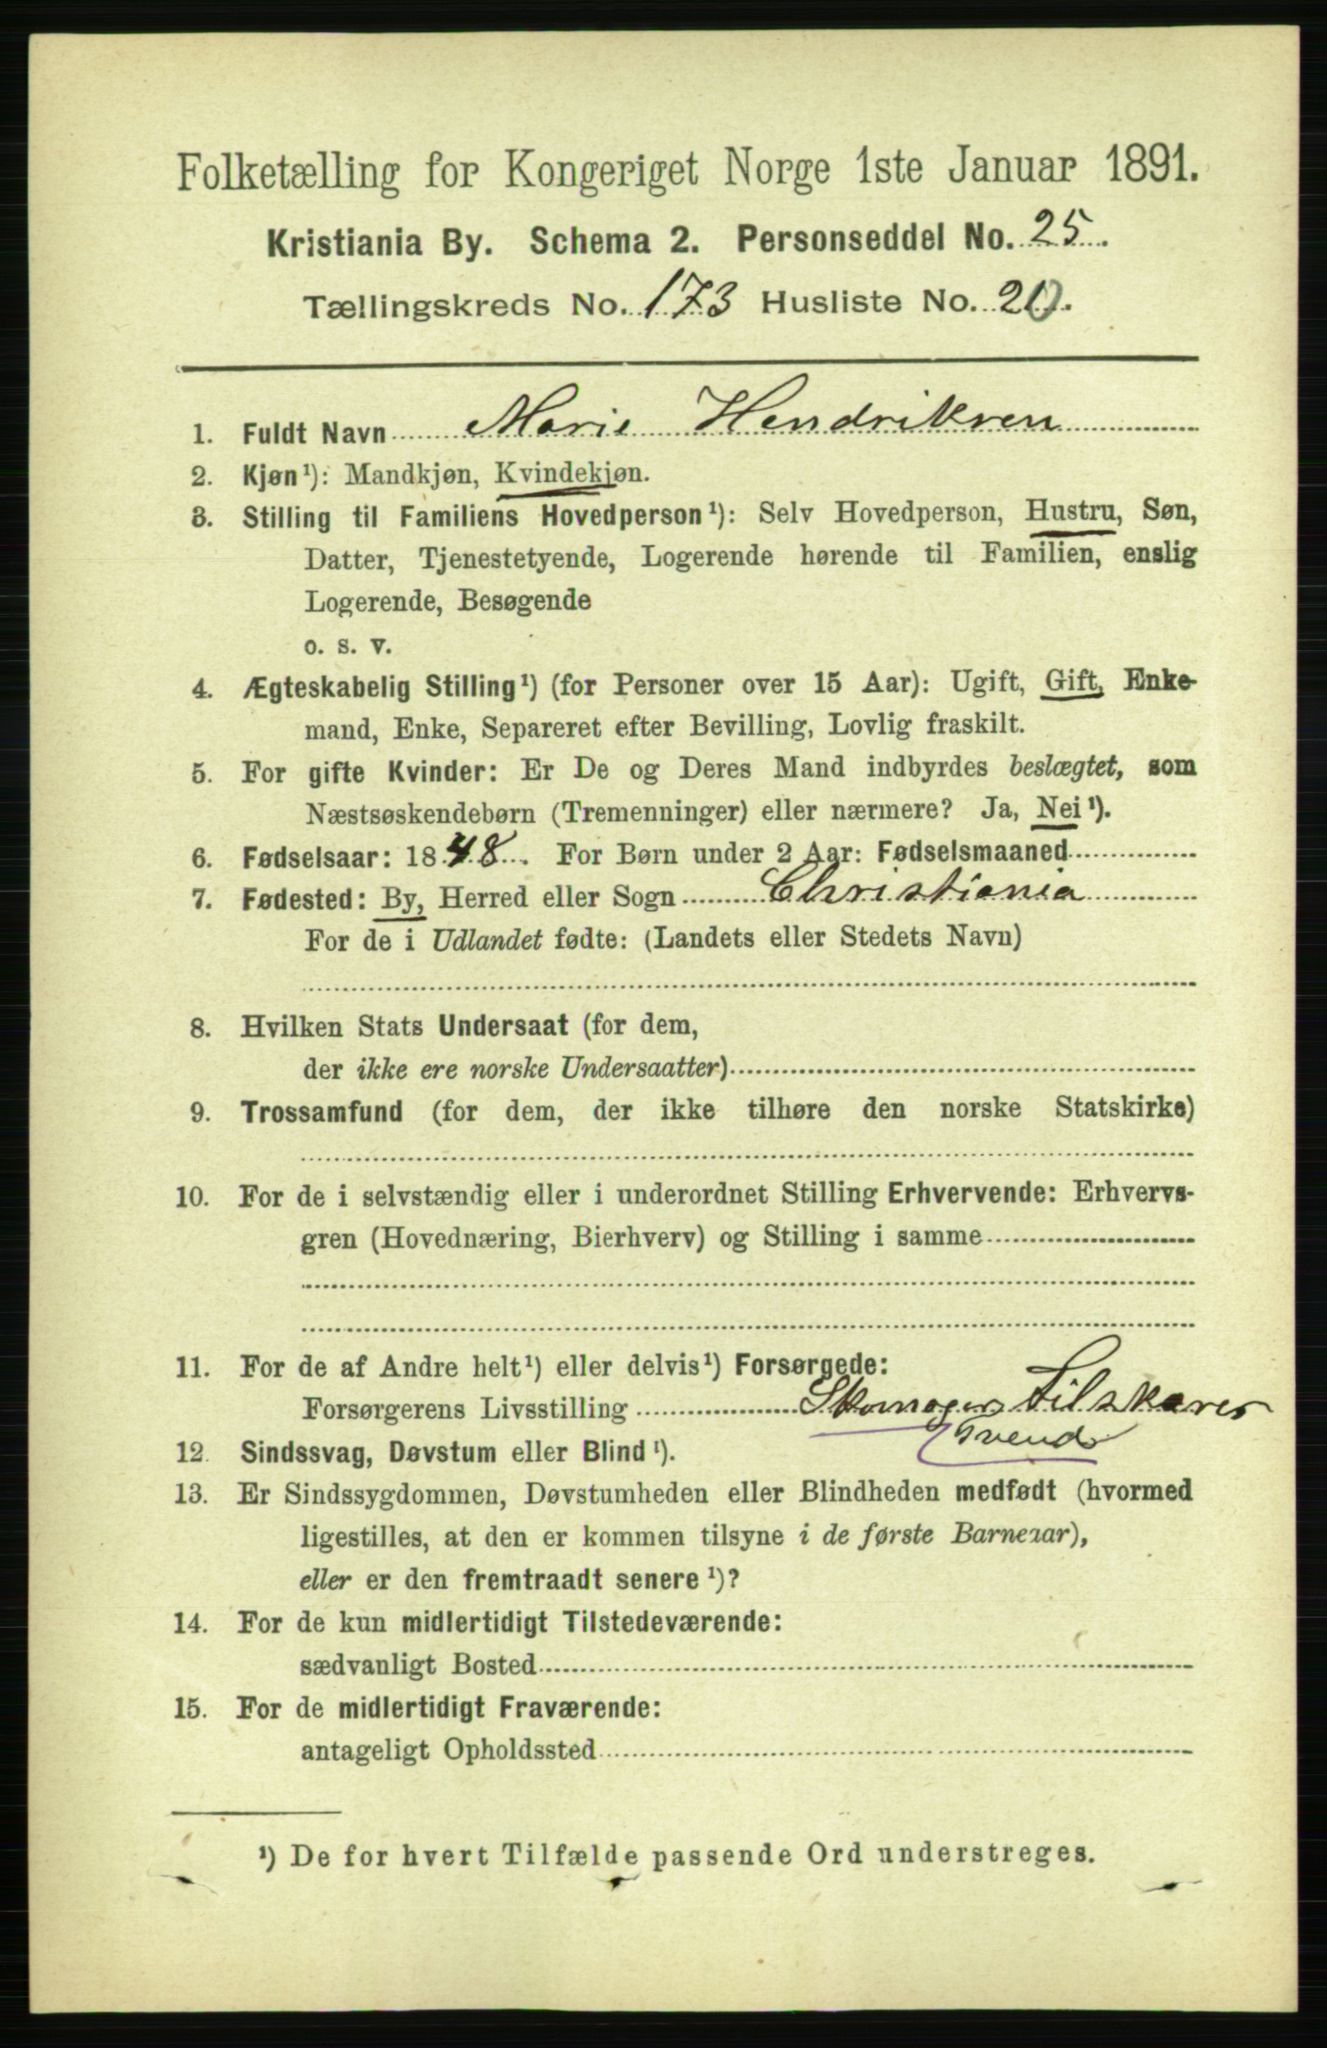 Folketælling for Kongeriget Norge 1ste Januar 1891.
Kristiania By. Schema 2. Personseddel No. 25.
Tællingskreds No. 173 Husliste No. 20.
1. Fuldt Navn Marie Hendriksen
2. Kjøn¹): Mandkjøn, Kvindekjøn.
3. Stilling til Familiens Hovedperson¹): Selv Hovedperson, Hustru, Søn,
Datter, Tjenestetyende, Logerende hørende til Familien, enslig
Logerende, Besøgende
o. s. v.
4. Ægteskabelig Stilling¹) (for Personer over 15 Aar): Ugift, Gift, Enke-
mand, Enke, Separeret efter Bevilling, Lovlig fraskilt.
5. For gifte Kvinder: Er De og Deres Mand indbyrdes beslægtet, som
Næstsøskendebørn (Tremenninger) eller nærmere? Ja, Nei¹).
6. Fødselsaar: 1848. For Børn under 2 Aar: Fødselsmaaned
7. Fødested: By, Herred eller Sogn Christiania
For de i Udlandet fødte: (Landets eller Stedets Navn)
8. Hvilken Stats Undersaat (for dem,
der ikke ere norske Undersaatter)
9. Trossamfund (for dem, der ikke tilhøre den norske Statskirke)
10. For de i selvstændig eller i underordnet Stilling Erhvervende: Erhvervs-
gren (Hovednæring, Bierhverv) og Stilling i samme
11. For de af Andre helt¹) eller delvis¹) Forsørgede:
Forsørgerens Livsstilling Skomager Tilskærer
Svend
12. Sindssvag, Døvstum eller Blind¹).
13. Er Sindssygdommen, Døvstumheden eller Blindheden medfødt (hvormed
ligestilles, at den er kommen tilsyne i de første Barneaar),
eller er den fremtraadt senere¹)?
14. For de kun midlertidigt Tilstedeværende:
sædvanligt Bosted
15. For de midlertidigt Fraværende:
antageligt Opholdssted
¹) De for hvert Tilfælde passende Ord understreges.